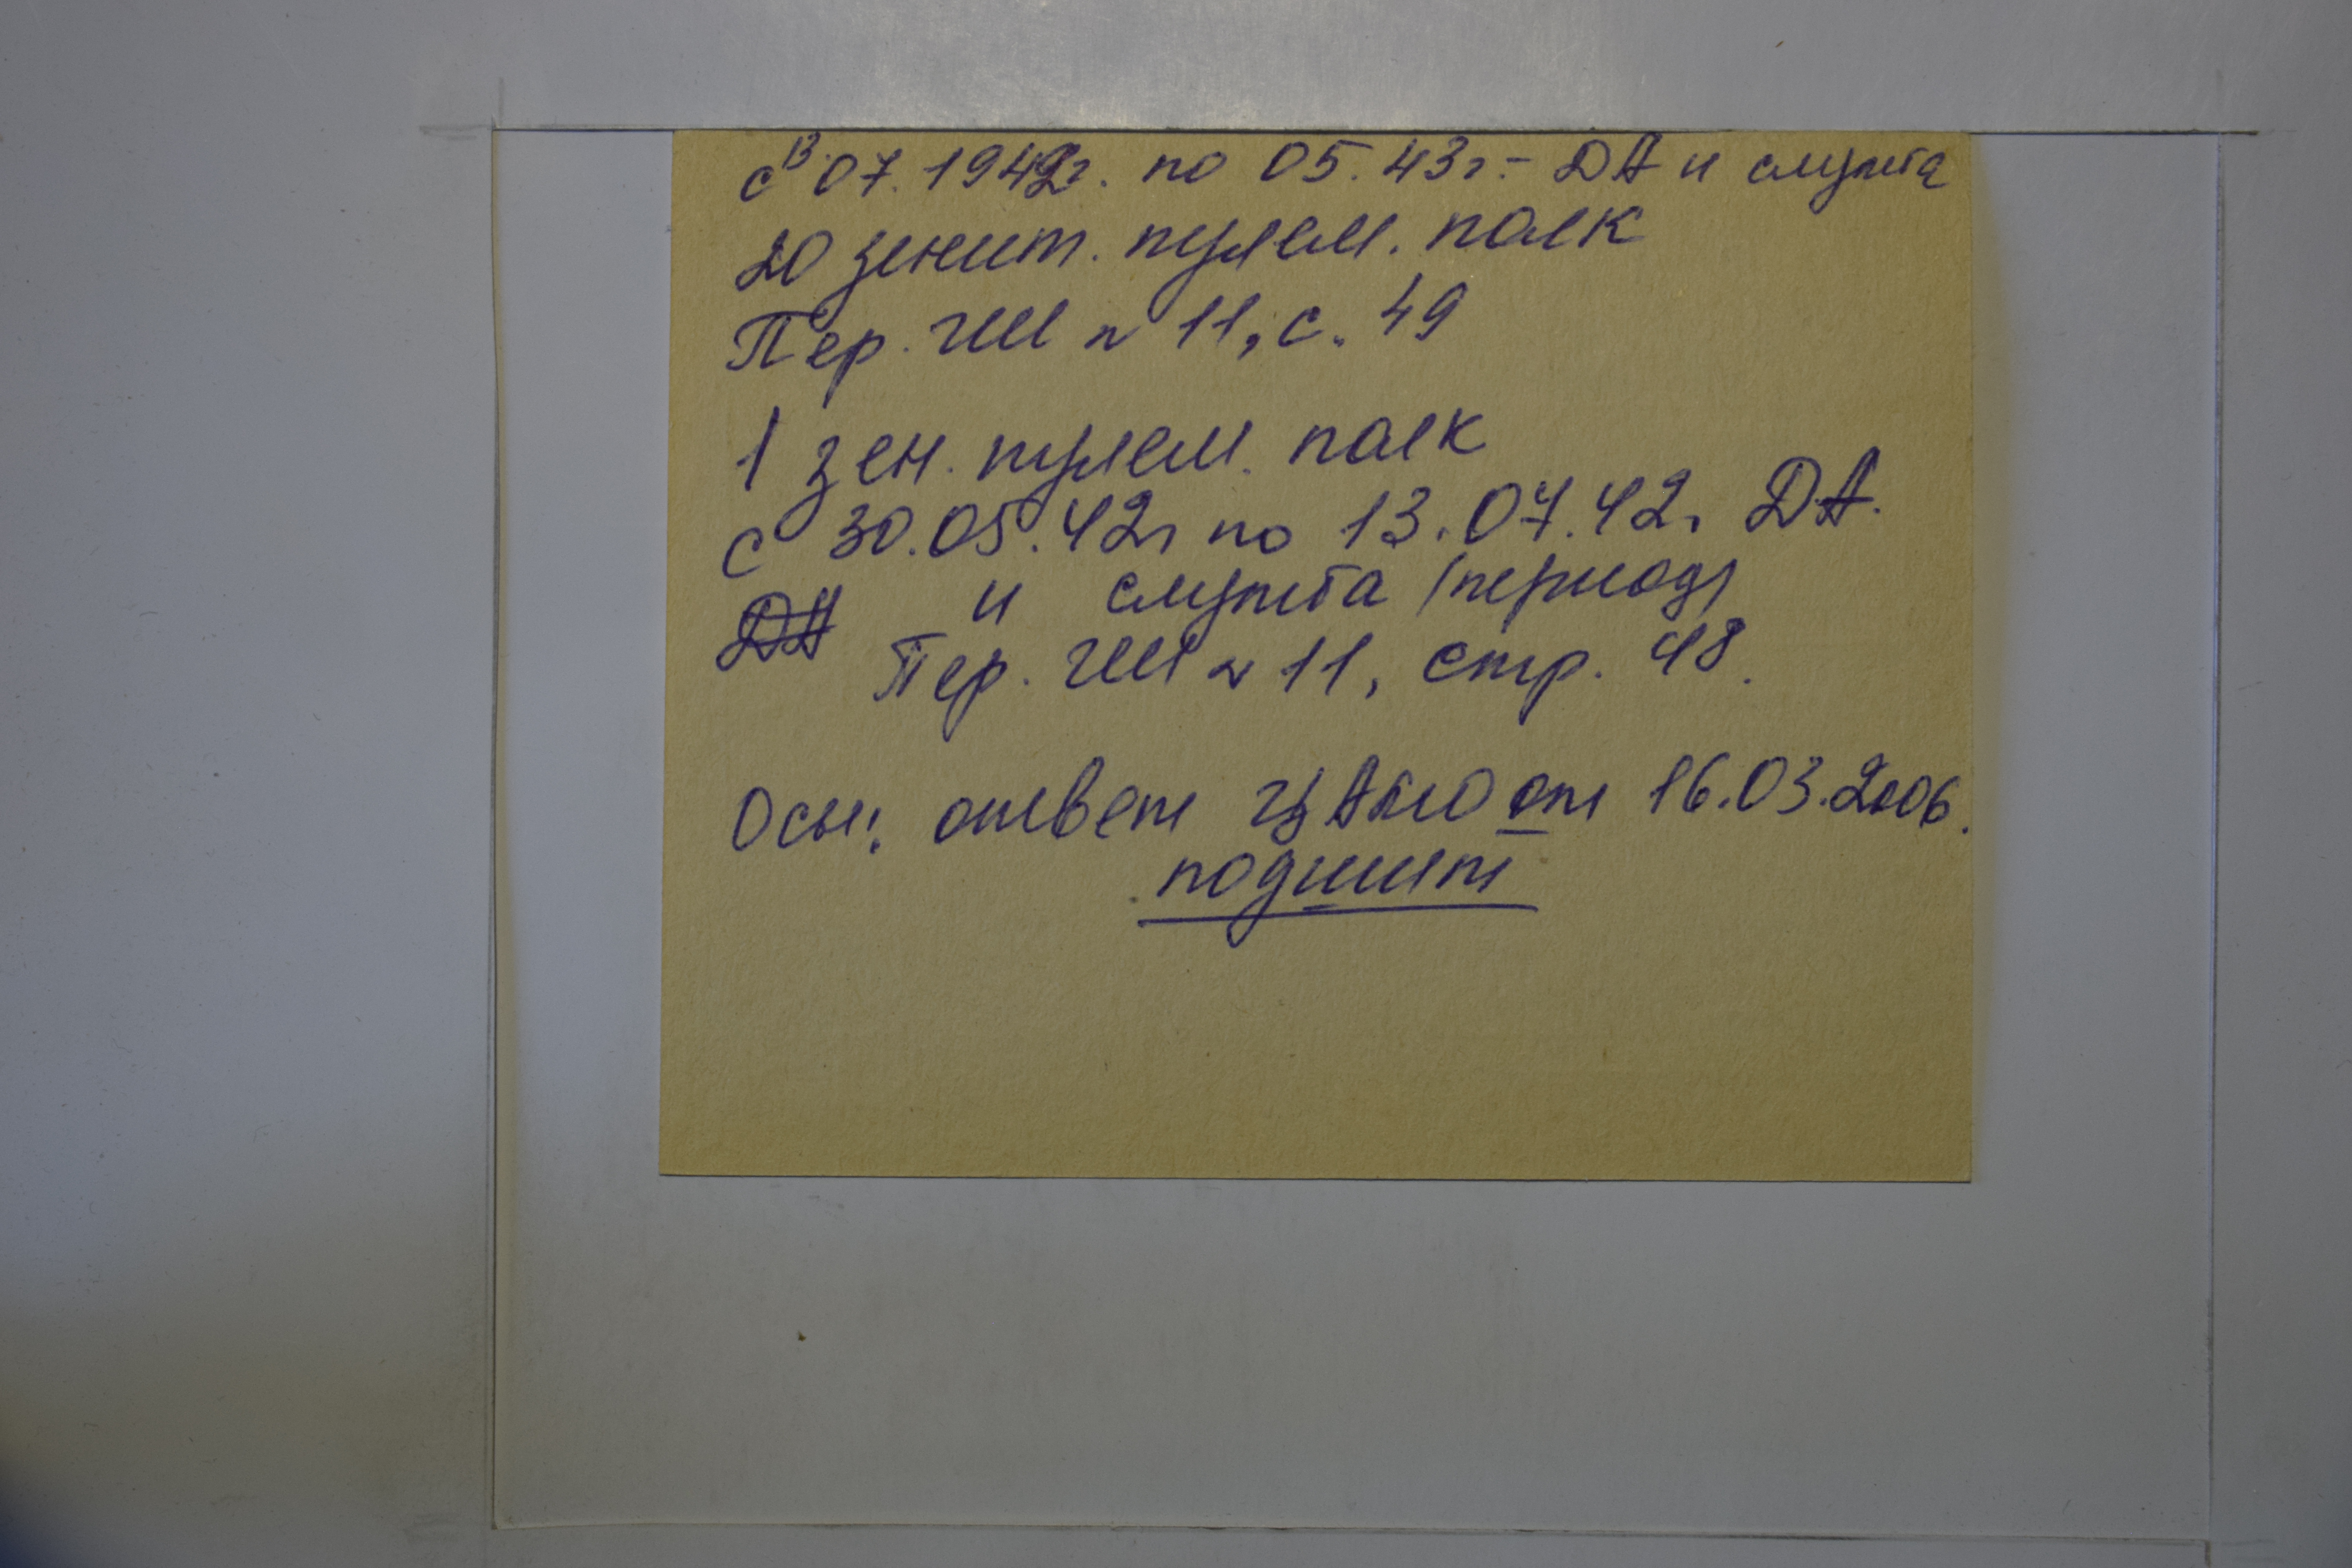 с 13.07.1942г. по 05.43г. - ДА и служба
20 зенит. пулем. полк
Пер. ГШ № 11, с. 49
1 зен. пулем. полк
с 30.05.42г по 13.07.42г ДА.
ДА и служба (период)
Пер. ГШ № 11, стр. 48.
Осн: ответ ЦАМО от 16.03.2006.
подшит